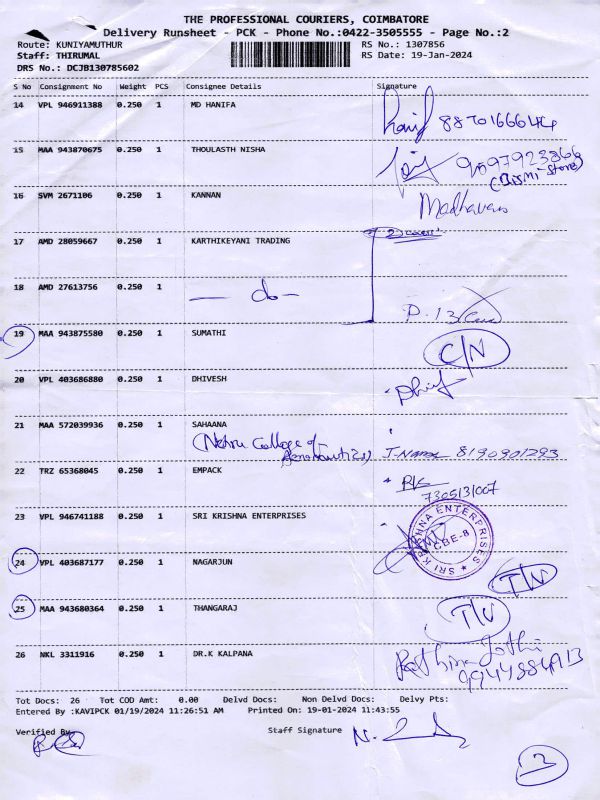 THE PROFESSIONAL COURIERS, COIMBATORE
Delivery Runsheet - PCK - Phone No.:0422-3505555 - Page No.:2
Route: KUNIYAMUTHUR RS No.: 1307856
Staff: THIRUMAL RS Date: 19-Jan-2024
DRS No.: DCJB130785602
S No Consignment No Weight PCS Consignee Details Signature
14 VPL 946911388 0.250 1 MD HANIFA
15 MAA 943870675 0.250 1 THOULASTH NISHA
9097923866
16 SVM 2671106 0.250 1 KANNAN Madhavan
17 AMD 28059667 0.250 1 KARTHIKEYANI TRADING
18 AMD 27613756 0.250 1 — do —
19 MAA 943875580 0.250 1 SUMATHI C/N
20 VPL 403686880 0.250 1 DHIVESH
21 MAA 572039936 0.250 1 SAHAANA
(Nehru College of
Aeronautics) 8190901293
22 TRZ 65368045 0.250 1 EMPACK
7305131007
23 VPL 946741188 0.250 1 SRI KRISHNA ENTERPRISES
SRI KRISHNA ENTERPRISES
CBE-8
24 VPL 403687177 0.250 1 NAGARJUN
25 MAA 943680364 0.250 1 THANGARAJ
26 NKL 3311916 0.250 1 DR.K KALPANA Rathina Jothi
9944884913
Tot Docs: 26 Tot COD Amt: 0.00 Delvd Docs: Non Delvd Docs: Delvy Pts:
Entered By :KAVIPCK 01/19/2024 11:26:51 AM Printed On: 19-01-2024 11:43:55
Verified By Staff Signature